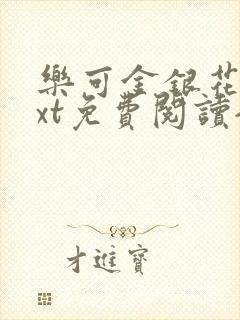 樂可金銀花
xt免費閱讀
才進寶